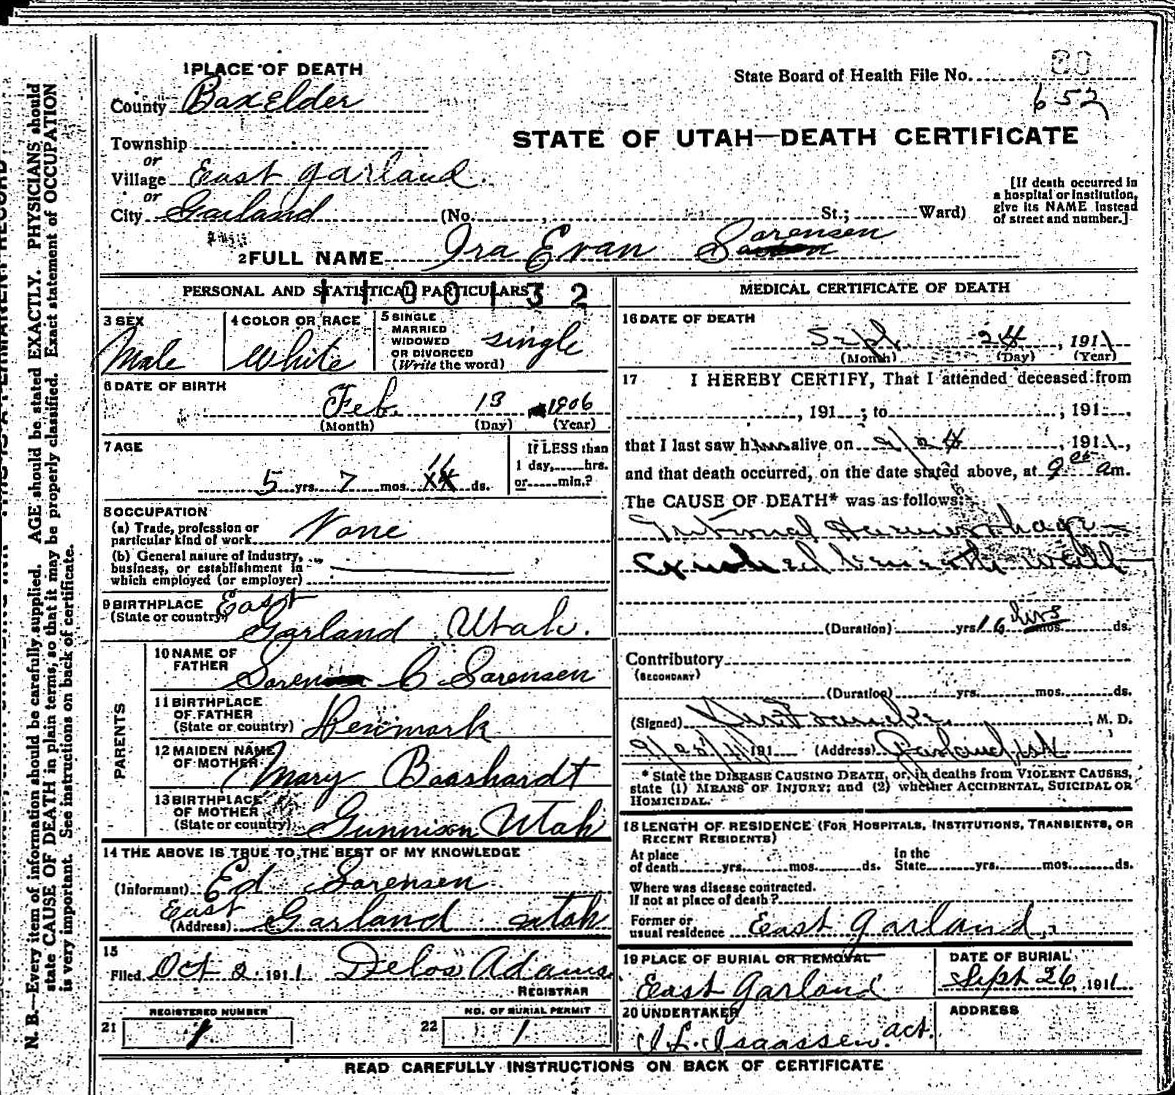 1 PLACE OF DEATH
County BoxElder
State Board of Health File No. 80
652
STATE OF UTAH—DEATH CERTIFICATE
Township
or
Village East Garland.
or
City Garland (No. St.; Ward)
[If death occurred in a hospital or institution, give its NAME instead of street and number.]
2 FULL NAME Ira Evan Sorensen
PERSONAL AND STATISTICAL PARTICULARS
1100132
3 SEX
Male
4 COLOR OR RACE
White
5 SINGLE MARRIED WIDOWED OR DIVORCED (Write the word)
single
6 DATE OF BIRTH
Feb. 13 1906
(Month) (Day) (Year)
7 AGE
5 yrs. 7 mos. 11 ds.
If LESS than 1 day, hrs. or min.?
8 OCCUPATION
(a) Trade, profession or particular kind of work None
(b) General nature of industry, business, or establishment in which employed (or employer)
9 BIRTHPLACE (State or country)
East
Garland Utah.
PARENTS
10 NAME OF FATHER
Soren C Sorensen
11 BIRTHPLACE OF FATHER (State or country)
Denmark
12 MAIDEN NAME OF MOTHER
Mary Baashardt
13 BIRTHPLACE OF MOTHER (State or country)
Gunnison Utah
14 THE ABOVE IS TRUE TO THE BEST OF MY KNOWLEDGE
(Informant) Ed Sorensen
(Address) East Garland Utah
15
Filed Oct 2 1911 Delos Adams
REGISTRAR
21 REGISTERED NUMBER 1
22 NO. OF BURIAL PERMIT 1
MEDICAL CERTIFICATE OF DEATH
16 DATE OF DEATH
Sept 24, 1911
(Month) (Day) (Year)
17 I HEREBY CERTIFY, That I attended deceased from
, 191 ; to , 191 ,
that I last saw him alive on 9/24 1911,
and that death occurred, on the date stated above, at 9 am.
The CAUSE OF DEATH* was as follows:
Internal Hemorrhage
Crushed beneath wall
(Duration) yrs. 16 hrs mos. ds.
Contributory
(SECONDARY)
(Duration) yrs. mos. ds.
(Signed) M. D.
191 (Address) Garland Utah
* State the DISEASE CAUSING DEATH, or, in deaths from VIOLENT CAUSES, state (1) MEANS OF INJURY; and (2) whether ACCIDENTAL, SUICIDAL OR HOMICIDAL.
18 LENGTH OF RESIDENCE (FOR HOSPITALS, INSTITUTIONS, TRANSIENTS, OR RECENT RESIDENTS)
At place of death yrs. mos. ds. In the State yrs. mos. ds.
Where was disease contracted.
If not at place of death?
Former or usual residence East Garland,
19 PLACE OF BURIAL OR REMOVAL
East Garland
DATE OF BURIAL
Sept 26, 1911
20 UNDERTAKER
Isaassen act.
ADDRESS
READ CAREFULLY INSTRUCTIONS ON BACK OF CERTIFICATE
N. B.—Every item of information should be carefully supplied. AGE should be stated EXACTLY. PHYSICIANS should
state CAUSE OF DEATH in plain terms, so that it may be properly classified. Exact statement of OCCUPATION
is very important. See instructions on back of certificate.